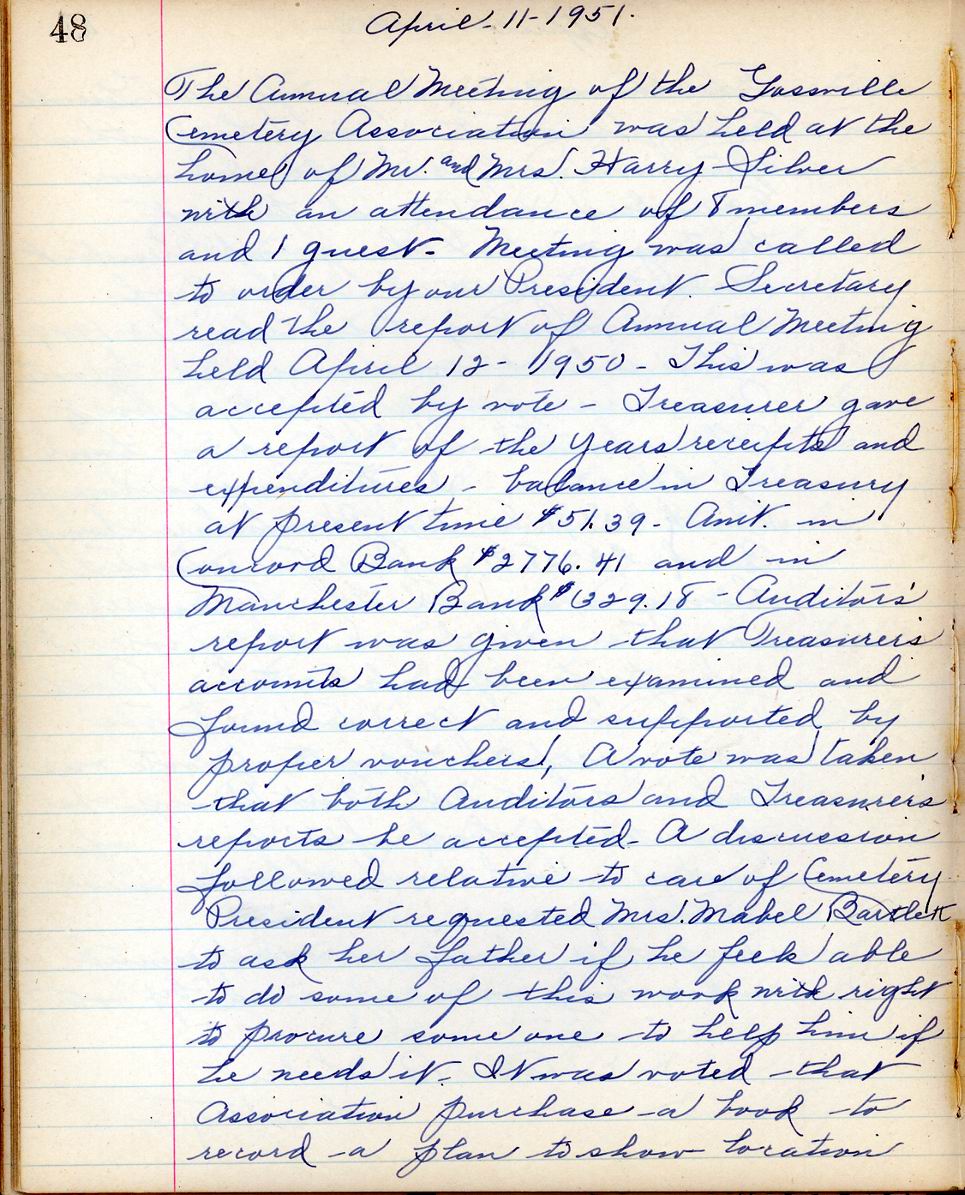 48
April-11-1951.
The Annual Meeting of the Gossville
Cemetery Association was held at the
home of Mr. and Mrs. Harry Silver
with an attendance of 8 members
and 1 guest- Meeting was called
to order by our President. Secretary
read the report of Annual Meeting
held April 12- 1950- This was
accepted by vote - Treasurer gave
a report of the years receipts and
expenditures - balance in Treasury
at present time $51.39- Amt. in
Concord Bank $2776.41 and in
Manchester Bank $1329.18 - Auditors'
report was given that Treasurer's
accounts had been examined and
found correct and supported by
proper vouchers, A vote was taken
that both Auditors and Treasurer's
reports be accepted- A discussion
followed relative to care of Cemetery
President requested Mrs. Mabel Bartlett
to ask her father if he feels able
to do some of this work with right
to procure some one to help him if
he needs it. It was voted - that
Association purchase a book to
record a plan to show location